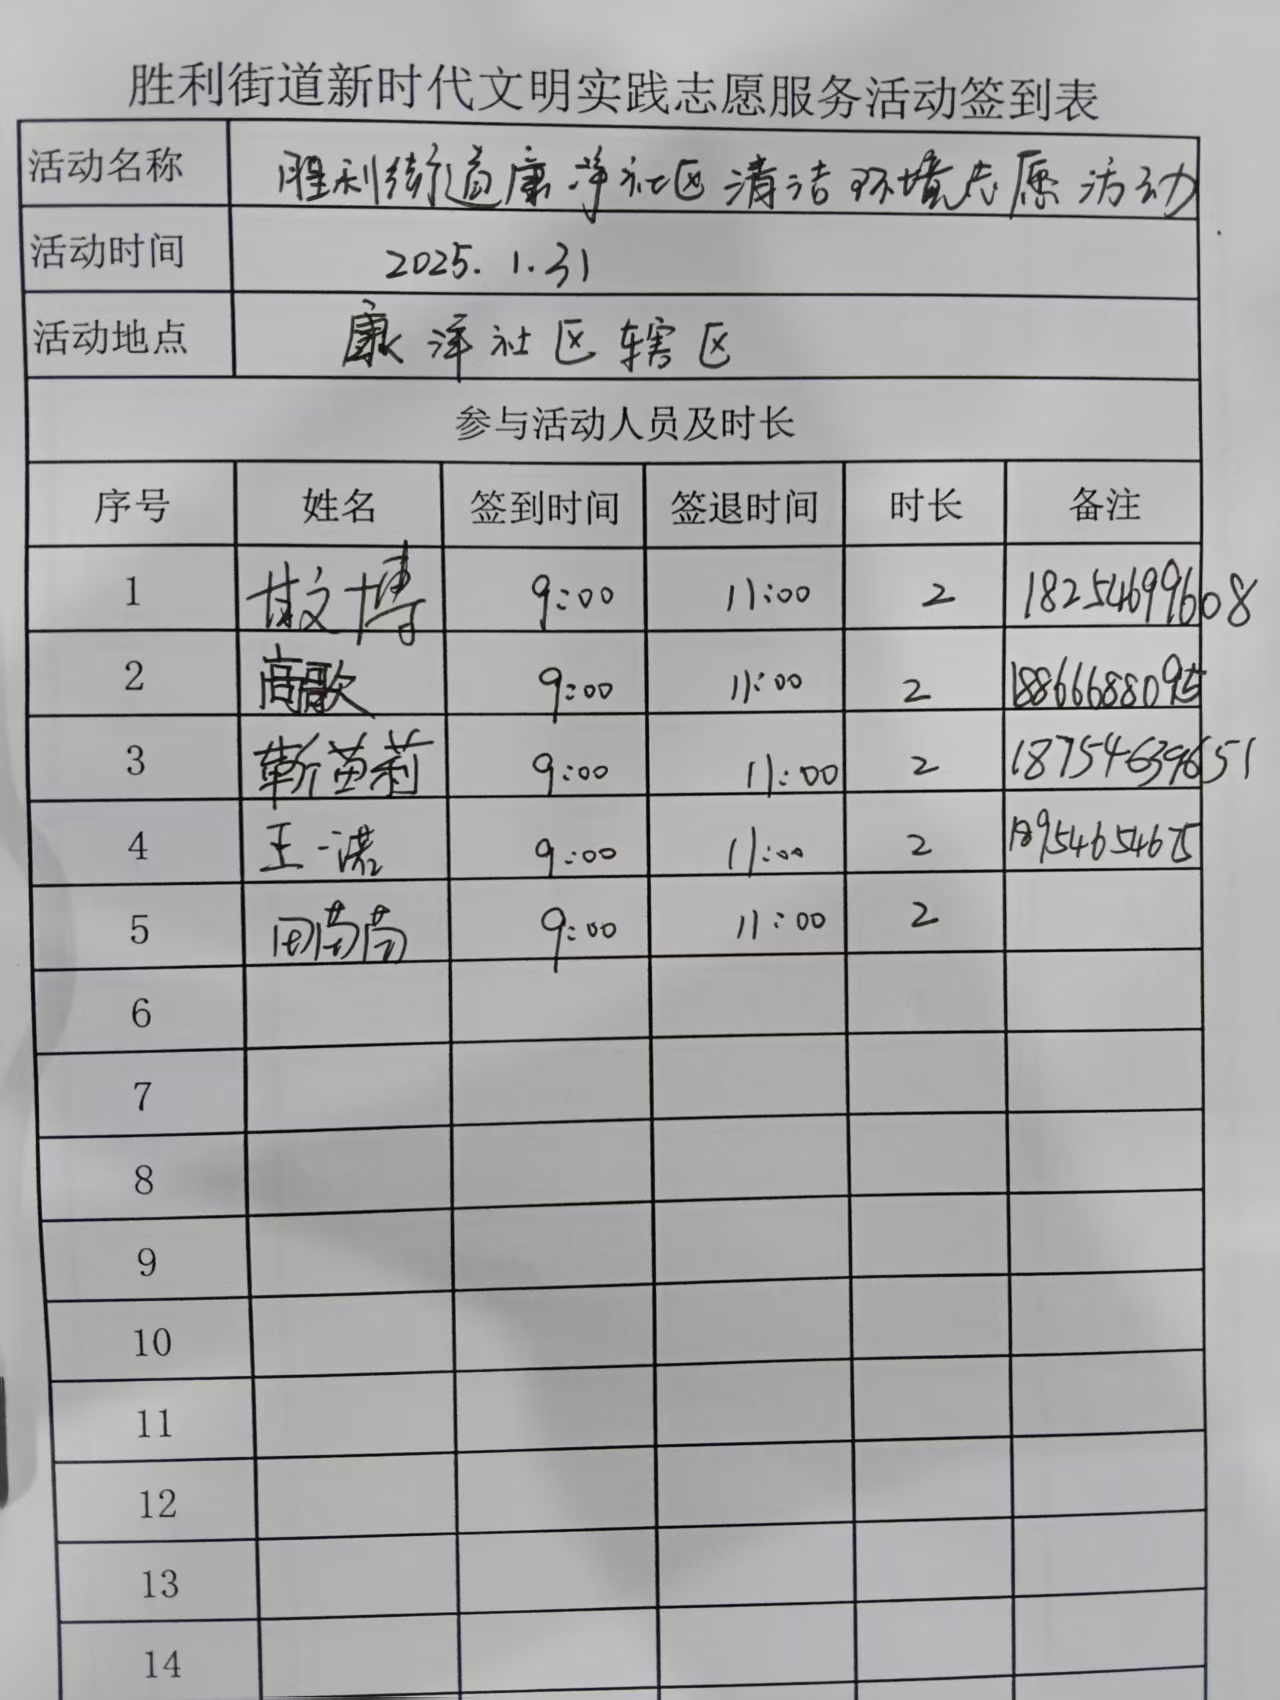 胜利街道新时代文明实践志愿服务活动签到表
活动名称 胜利街道康洋社区清洁环境志愿活动
活动时间 2025.1.31
活动地点 康洋社区辖区
参与活动人员及时长
序号 姓名 签到时间 签退时间 时长 备注
1 文博 9:00 11:00 2 18254699608
2 高歌 9:00 11:00 2 18866688095
3 靳苗莉 9:00 11:00 2 18754639651
4 王一诺 9:00 11:00 2 18954654675
5 田苗苗 9:00 11:00 2
6
7
8
9
10
11
12
13
14